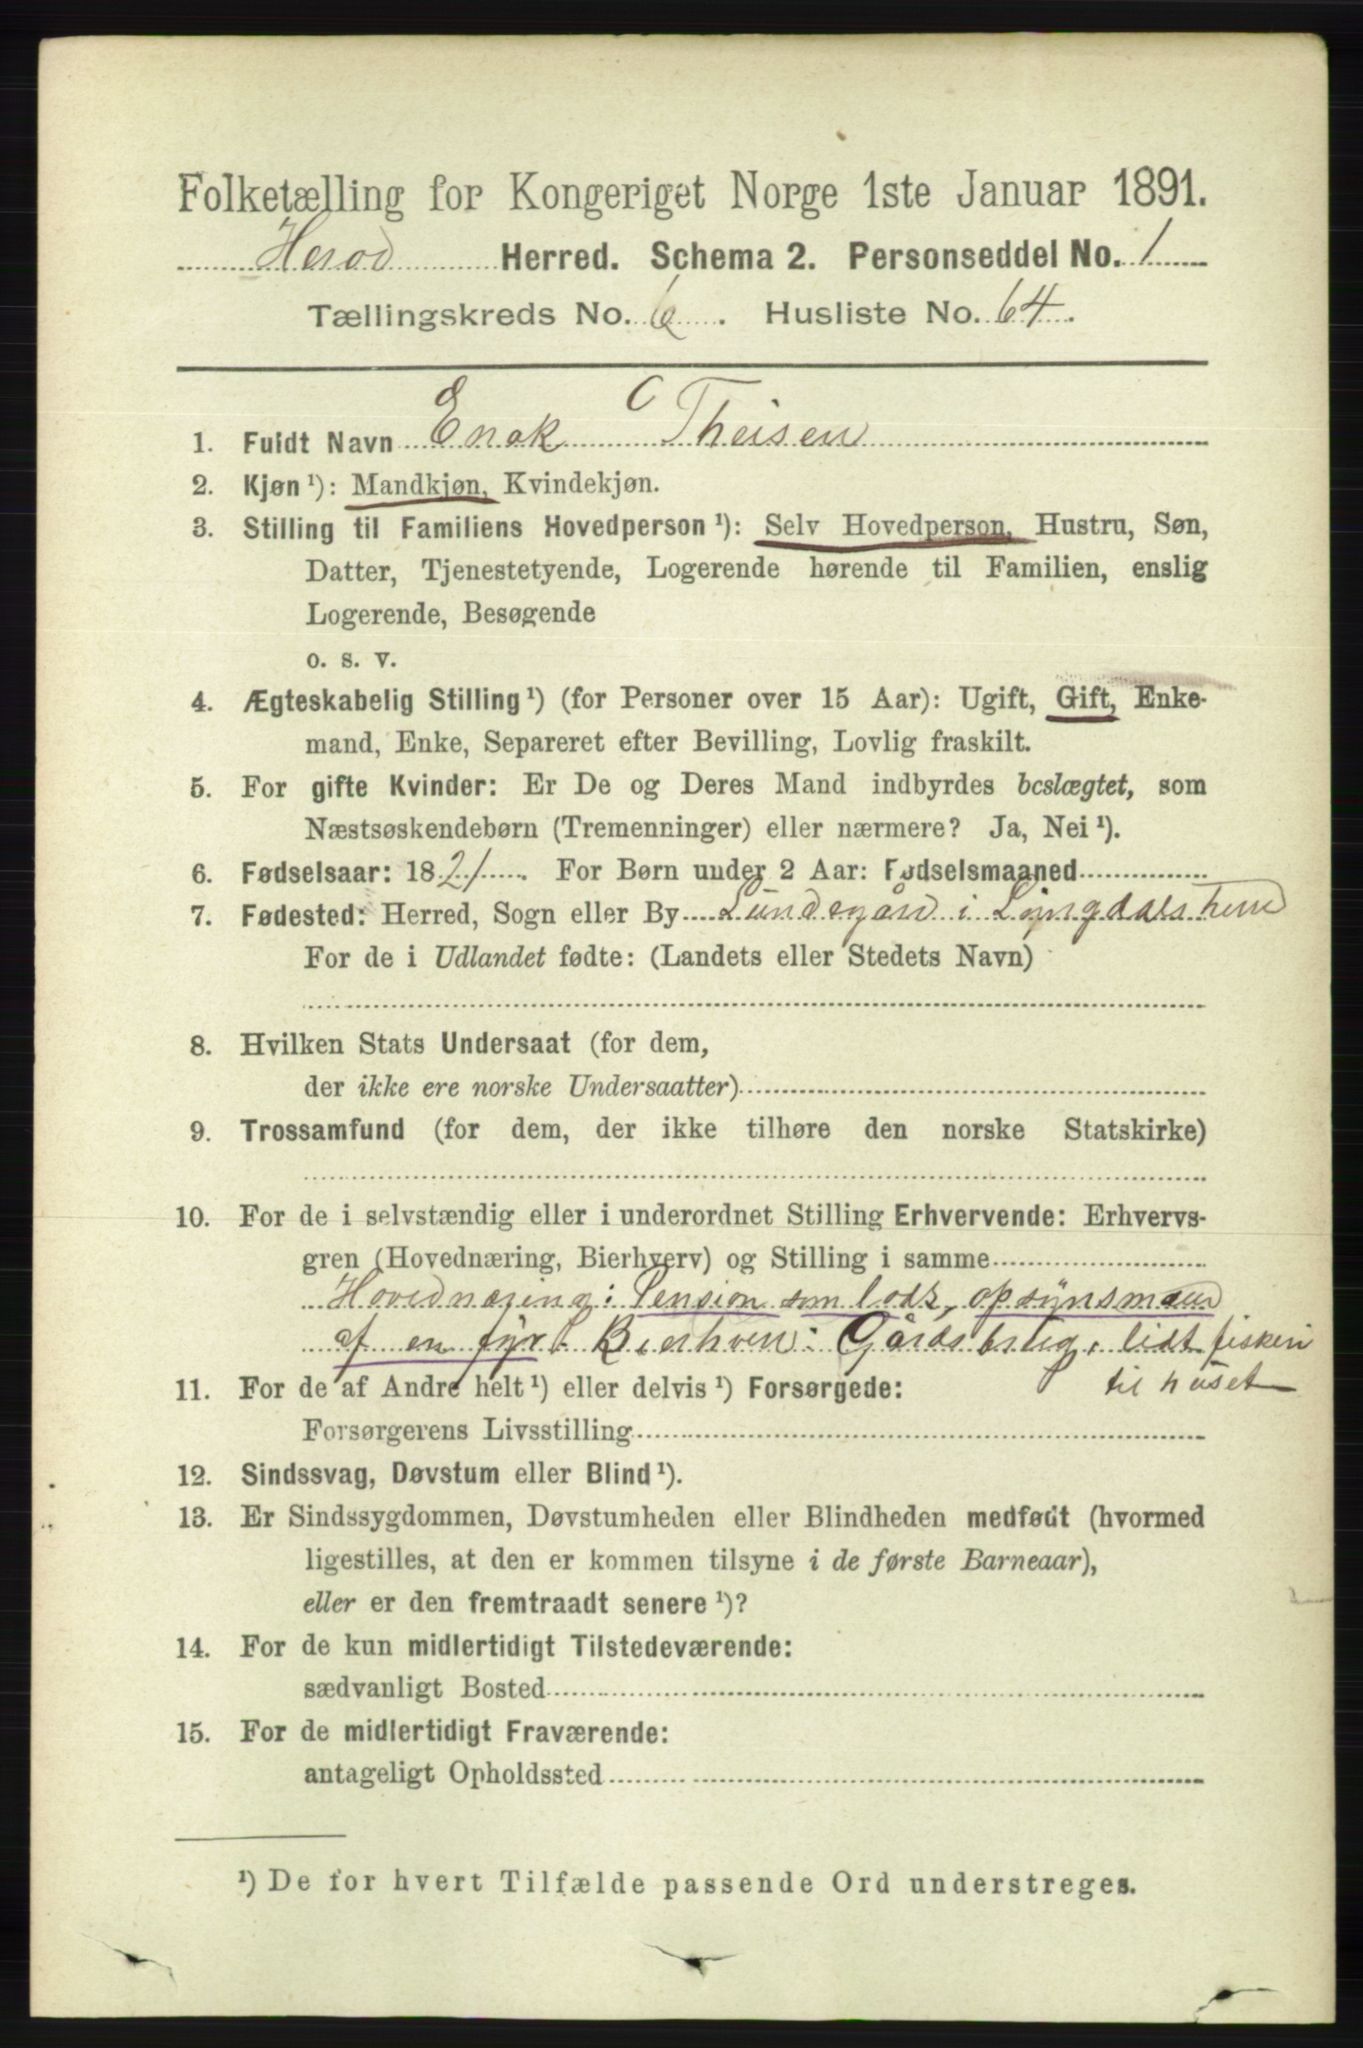 Folketælling for Kongeriget Norge 1ste Januar 1891.
Herod Herred. Schema 2. Personseddel No. 1
Tællingskreds No. 6. Husliste No. 64.
1. Fuldt Navn Enok C Theisen
2. Kjøn ¹): Mandkjøn, Kvindekjøn.
3. Stilling til Familiens Hovedperson ¹): Selv Hovedperson, Hustru, Søn,
Datter, Tjenestetyende, Logerende hørende til Familien, enslig
Logerende, Besøgende
o. s. v.
4. Ægteskabelig Stilling ¹) (for Personer over 15 Aar): Ugift, Gift, Enke-
mand, Enke, Separeret efter Bevilling, Lovlig fraskilt.
5. For gifte Kvinder: Er De og Deres Mand indbyrdes beslægtet, som
Næstsøskendebørn (Tremenninger) eller nærmere? Ja, Nei ¹).
6. Fødselsaar: 1821. For Børn under 2 Aar: Fødselsmaaned
7. Fødested: Herred, Sogn eller By Lundegård i Lyngdals
For de i Udlandet fødte: (Landets eller Stedets Navn)
8. Hvilken Stats Undersaat (for dem,
der ikke ere norske Undersaatter)
9. Trossamfund (for dem, der ikke tilhøre den norske Statskirke)
10. For de i selvstændig eller i underordnet Stilling Erhvervende: Erhvervs-
gren (Hovednæring, Bierhverv) og Stilling i samme
Hovednæring: Pension som lods, opsynsmand
af en fyr. Bierhverv: Gårdsbrug, lidt fiskeri
til huset
11. For de af Andre helt ¹) eller delvis ¹) Forsørgede:
Forsørgerens Livsstilling
12. Sindssvag, Døvstum eller Blind ¹).
13. Er Sindssygdommen, Døvstumheden eller Blindheden medfødt (hvormed
ligestilles, at den er kommen tilsyne i de første Barneaar),
eller er den fremtraadt senere ¹)?
14. For de kun midlertidigt Tilstedeværende:
sædvanligt Bosted
15. For de midlertidigt Fraværende:
antageligt Opholdssted
¹) De for hvert Tilfælde passende Ord understreges.